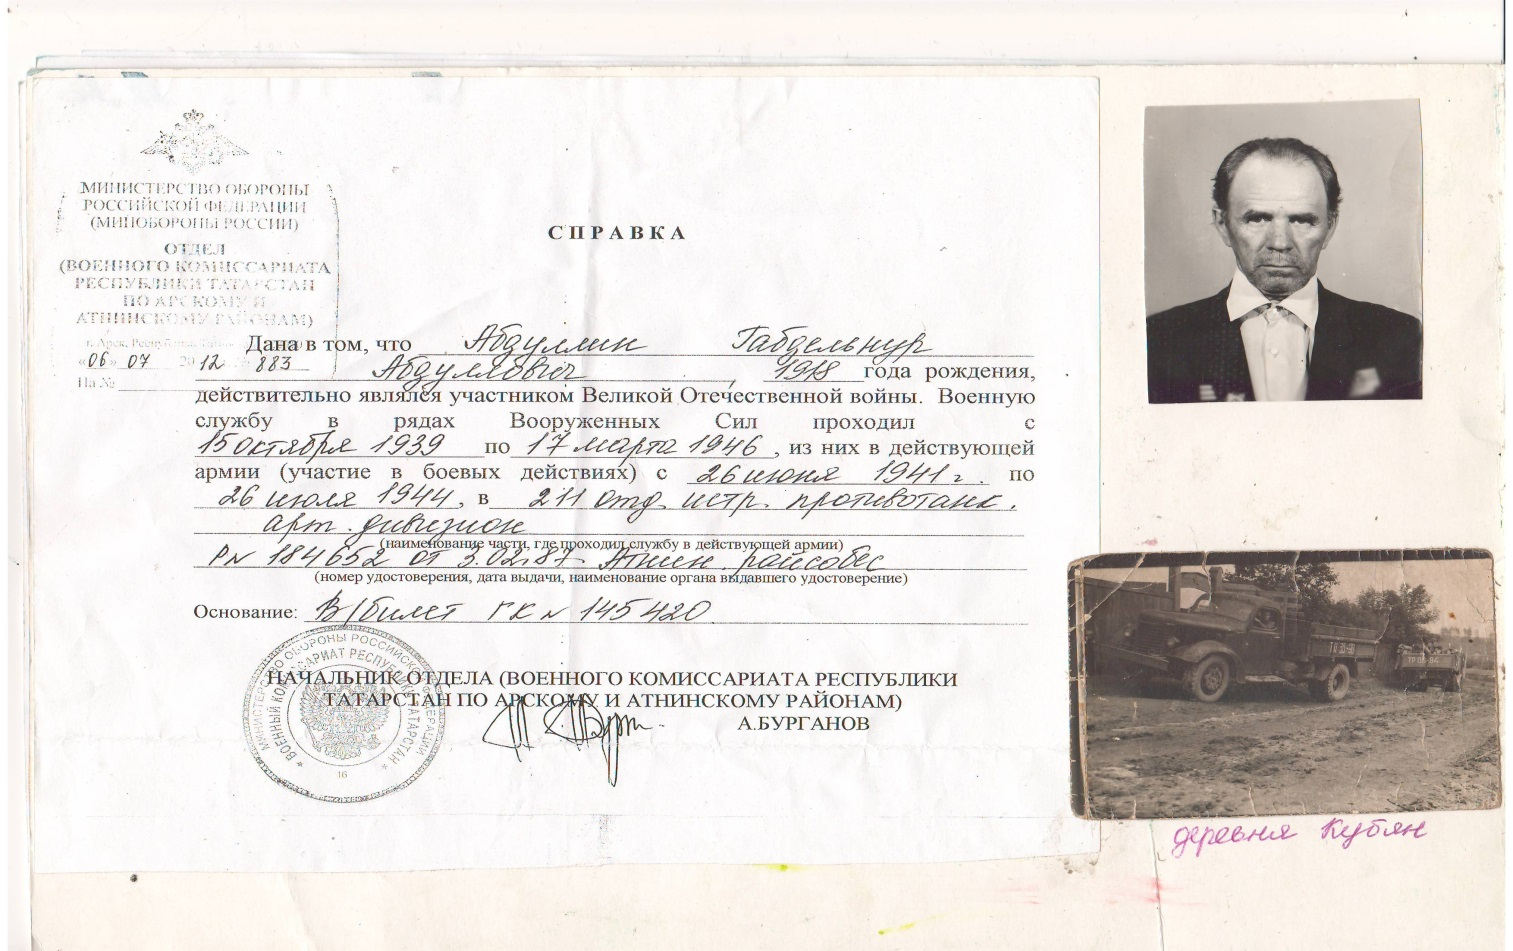 МИНИСТЕРСТВО ОБОРОНЫ
РОССИЙСКОЙ ФЕДЕРАЦИИ
(МИНОБОРОНЫ РОССИИ)
ОТДЕЛ
(ВОЕННОГО КОМИССАРИАТА
РЕСПУБЛИКИ ТАТАРСТАН
ПО АРСКОМУ И
АТНИНСКОМУ РАЙОНАМ)
г. Арск, Республика
«06» 07 2012 № 883
На №
СПРАВКА
Дана в том, что Абдуллин Габдельнур
Абдуллович, 1918 года рождения,
действительно являлся участником Великой Отечественной войны. Военную
службу в рядах Вооруженных Сил проходил с
15 октября 1939 по 17 марта 1946, из них в действующей
армии (участие в боевых действиях) с 26 июня 1941 г. по
26 июля 1944, в 211 отд. истр. противотанк.
арт. дивизион
(наименование части, где проходил службу в действующей армии)
Р № 184652 от 3.02.87 Атнин. райсобес
(номер удостоверения, дата выдачи, наименование органа выдавшего удостоверение)
Основание: В/билет ГК № 145420
НАЧАЛЬНИК ОТДЕЛА (ВОЕННОГО КОМИССАРИАТА РЕСПУБЛИКИ
ТАТАРСТАН ПО АРСКОМУ И АТНИНСКОМУ РАЙОНАМ)
А.БУРГАНОВ
МИНИСТЕРСТВО ОБОРОНЫ РОССИЙСКОЙ ФЕДЕРАЦИИ
ВОЕННЫЙ КОМИССАРИАТ РЕСПУБЛИКИ ТАТАРСТАН
16
деревня Кубян